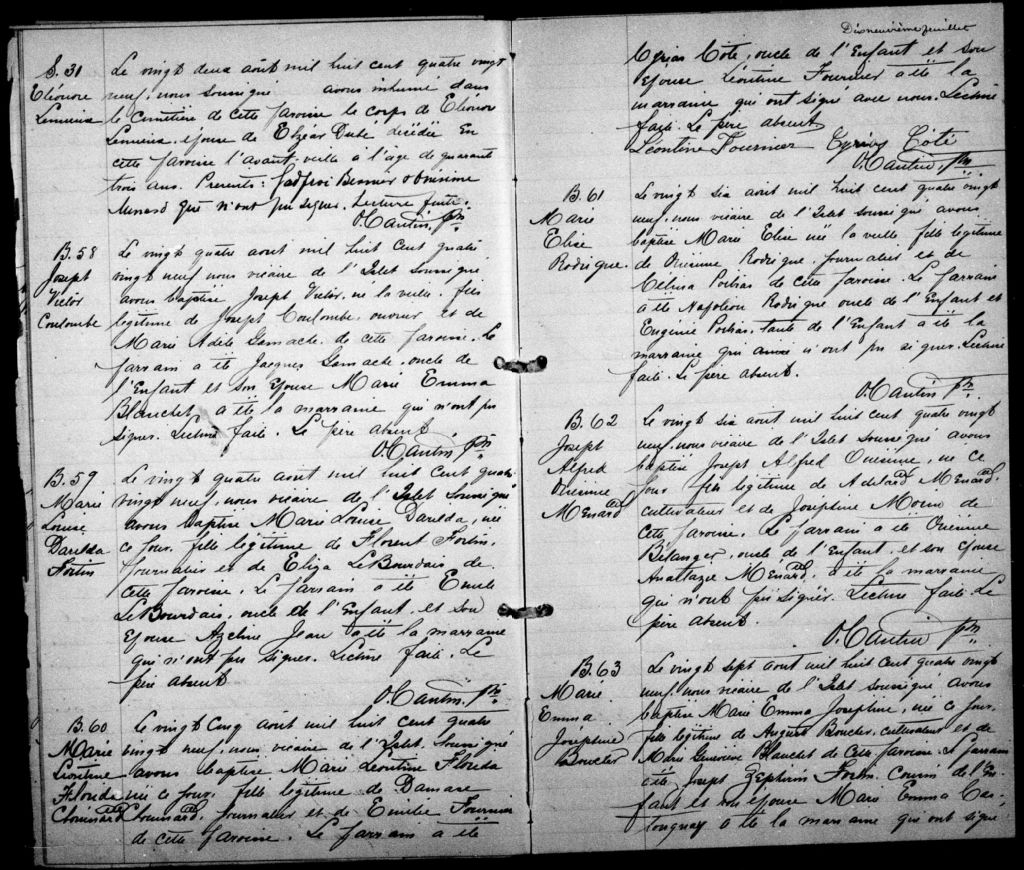 S. 31
Eléonore
Lemieux
Le vingt deux août mil huit cent quatre vingt
neuf, nous soussigné avons inhumé dans
le cimétière de cette paroisse le corps de Eléonor
Lemieux, épouse de Elzéar Dubé décédée en
cette paroisse l'avant-veille à l'âge de quarante
trois ans. Présents: Godfroi Bernier & Onésime
Menard qui n'ont pu signer. Lecture faite.
O. Cantin, ptre
B. 58
Joseph
Victor
Coulombe
Le vingt quatre août mil huit cent quatre
vingt neuf nous vicaire de l'Islet soussigné
avons baptisé Joseph Victor, né la veille, fils
légitime de Joseph Coulombe, ouvrier et de
Marie Adèle Gamache de cette paroisse. Le
parrain a été Jacques Gamache, oncle de
l'Enfant et son épouse Marie Emma
Blanchet, a été la marraine qui n'ont pu
signer. Lecture faite. Le père absent
O. Cantin ptre
B. 59
Marie
Louise
Darilda
Fortin
Le vingt quatre août mil huit cent quatre
vingt neuf, nous vicaire de l'Islet soussigné
avons baptisé Marie Louise Darilda, née
ce jour, fille légitime de Florent Fortin,
journalier et de Eliza LeBourdais de
cette paroisse. Le parrain a été Emile
LeBourdais, oncle de l'Enfant, et son
épouse Azeline Jean a été la marraine
qui n'ont pu signer. Lecture faite. Le
père absent
O. Cantin, ptre
B. 60
Marie
Léontine
Florida
Chouinard
Le vingt cinq août mil huit cent quatre
vingt neuf, nous vicaire de l'Islet, soussigné
avons baptisé Marie Léontine Florida
née ce jour, fille légitime de Damase
Chouinard, journalier et de Emilie Fournier
de cette paroisse. Le parrain a été
Dixneuvième feuillet
Cyrias Côté, oncle de l'Enfant et son
épouse Léontine Fournier a été la
marraine qui ont signé avec nous. Lecture
faite. Le père absent
Léontine Fournier Cyrias Côté
O. Cantin, ptre
B. 61
Marie
Elise
Rodrigue.
Le vingt six août mil huit cent quatre vingt
neuf, nous vicaire de l'Islet soussigné avons
baptisé Marie Elise née la veille fille légitime
de Onésime Rodrigue, journalier et de
Célina Poitras de cette paroisse. Le parrain
a été Napoléon Rodrigue oncle de l'Enfant et
Eugénie Poitras, tante de l'Enfant a été la
marraine qui n'ont pu signer. Lecture
faite. Le père absent.
O. Cantin ptre
B. 62
Joseph
Alfred
Onésime
Menard
Le vingt six août mil huit cent quatre vingt
neuf, nous vicaire de l'Islet soussigné avons
baptisé Joseph Alfred Onésime, né ce
jour, fils légitime de Adélard Menard,
cultivateur et de Joséphine Morin de
cette paroisse. Le parrain a été Onésime
Bélanger, oncle de l'Enfant, et son épouse
Anastazie Menard, a été la marraine
qui n'ont pu signer. Lecture faite Le
père absent.
O. Cantin ptre
B. 63
Marie
Emma
Joséphine
Boucher
Le vingt sept août mil huit cent quatre vingt
neuf, nous vicaire de l'Islet soussigné avons
baptisé Marie Emma Joséphine, née ce jour,
fille légitime de August Boucher, cultivateur et de
Marie Geneviève Blanchet de cette paroisse. Le parrain
a été Joseph Zéphirin Fortin, cousin de l'En-
fant et son épouse Marie Emma Cas-
tonguay a été la marraine qui ont signé